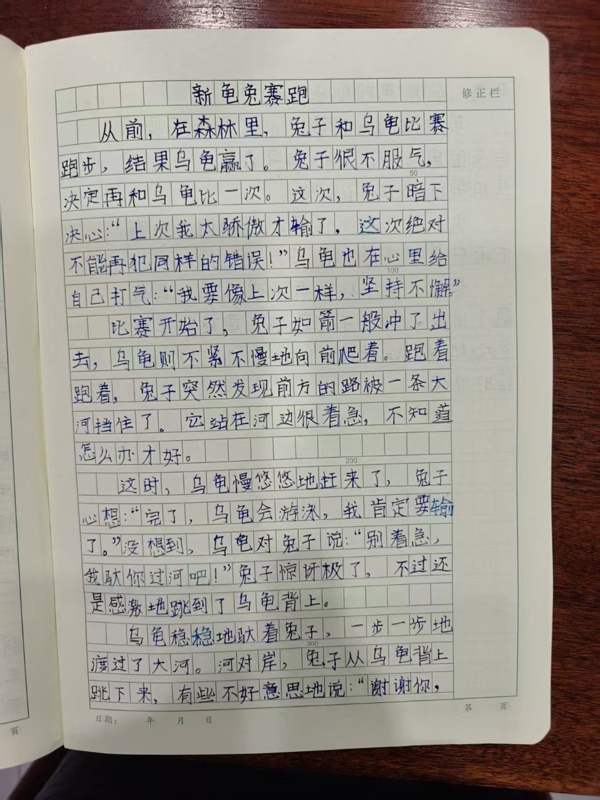 新龟兔赛跑
修正栏
从前，在森林里，兔子和乌龟比赛
跑步，结果乌龟赢了。兔子很不服气，
50
决定再和乌龟比一次。这次，兔子暗下
决心：“上次我太骄傲才输了，这次绝对
不能再犯同样的错误！”乌龟也在心里给
100
自己打气：“我要像上次一样，坚持不懈。”
比赛开始了，兔子如箭一般冲了出
去，乌龟则不紧不慢地向前爬着。跑着
跑着，兔子突然发现前方的路被一条大
河挡住了。它站在河边很着急，不知道
怎么办才好。
200
这时，乌龟慢悠悠地赶来了，兔子
心想：“完了，乌龟会游泳，我肯定要输
了。”没想到，乌龟对兔子说：“别着急，
我驮你过河吧！”兔子惊讶极了，不过还
是感激地跳到了乌龟背上。
乌龟稳稳地驮着兔子，一步一步地
300
渡过了大河。河对岸，兔子从乌龟背上
跳下来，有些不好意思地说：“谢谢你，
日期： 年 月 日
第 页
页